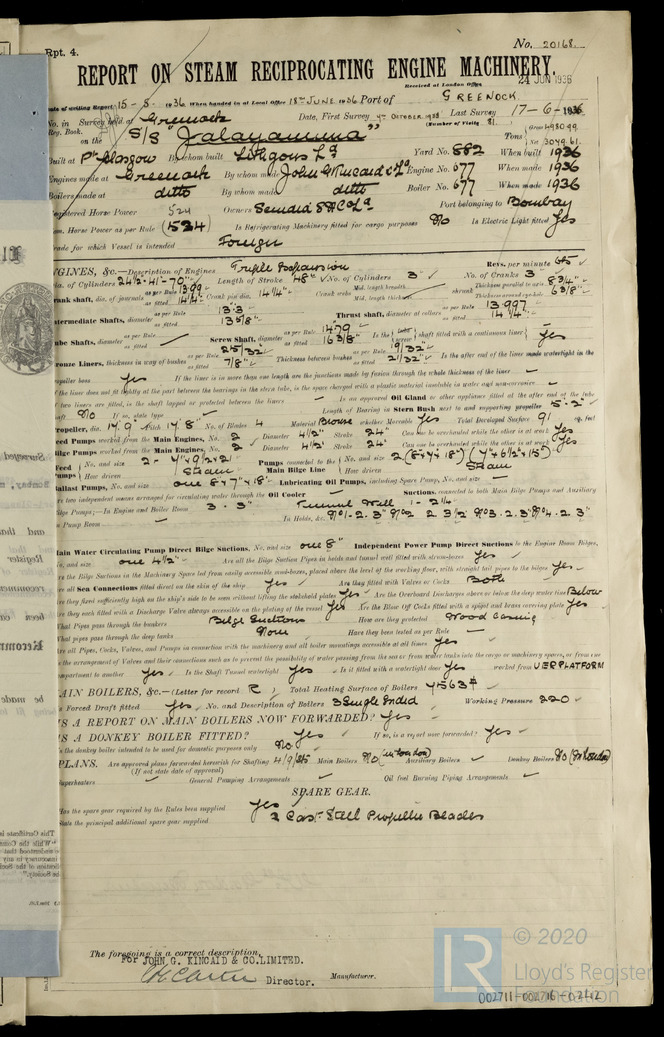 Rpt. 4.
No. 20168.
REPORT ON STEAM RECIPROCATING ENGINE MACHINERY.
Received at London Office 24 JUN 1936
Date of writing Report 15-5-1936 When handed in at Local Office 18th JUNE 1936 Port of GREENOCK
No. in Reg. Book. Survey held at Greenock Date, First Survey 4th OCTOBER 1935 Last Survey 17-6-1936
(Number of Visits 81)
on the S/S "Jalayamuna" Tons Gross 4980.99 Net 3049.61
Built at Pt Glasgow By whom built Lithgows Ld Yard No. 882 When built 1936
Engines made at Greenock By whom made John G Kincaid & Co Ld Engine No. 677 When made 1936
Boilers made at ditto By whom made ditto Boiler No. 677 When made 1936
Registered Horse Power 524 Owners Port belonging to Bombay
Nom. Horse Power as per Rule (534) Is Refrigerating Machinery fitted for cargo purposes No Is Electric Light fitted Yes
Trade for which Vessel is intended Foreign
ENGINES, &c.—Description of Engines Triple Expansion Revs. per minute 65
Dia. of Cylinders 24½-41-70" Length of Stroke 48" No. of Cylinders 3 No. of Cranks 3
Crank shaft, dia. of journals as per Rule 13.99 as fitted 14¼" Crank pin dia. 14¼" Crank webs Mid. length breadth Mid. length thickness shrunk Thickness parallel to axis 8¾" Thickness around eye-hole 6⅜"
Intermediate Shafts, diameter as per Rule 13.3 as fitted 13⅜" Thrust shaft, diameter at collars as per Rule 13.997 as fitted 14¼"
Tube Shafts, diameter as per Rule as fitted Screw Shaft, diameter as per Rule 14.79 as fitted 16⅜" Is the screw shaft fitted with a continuous liner Yes
Bronze Liners, thickness in way of bushes as per Rule 25/32" as fitted 7/8" Thickness between bushes as per Rule 9/32" as fitted 21/32" Is the after end of the liner made watertight in the
propeller boss Yes If the liner is in more than one length are the junctions made by fusion through the whole thickness of the liner
If the liner does not fit tightly at the part between the bearings in the stern tube, is the space charged with a plastic material insoluble in water and non-corrosive
If two liners are fitted, is the shaft lapped or protected between the liners Is an approved Oil Gland or other appliance fitted at the after end of the tube
shaft No If so, state type Length of Bearing in Stern Bush next to and supporting propeller 5-2"
Propeller, dia. 17'9" Pitch 17'8" No. of Blades 4 Material Bronze whether Moveable Yes Total Developed Surface 91 sq. feet
Feed Pumps worked from the Main Engines, No. 2 Diameter 4½" Stroke 24" Can one be overhauled while the other is at work Yes
Bilge Pumps worked from the Main Engines, No. 2 Diameter 4½" Stroke 24" Can one be overhauled while the other is at work Yes
Feed Pumps No. and size How driven Steam Pumps connected to the Main Bilge Line No. and size How driven Steam
Ballast Pumps, No. and size one 8"x7"x18" Lubricating Oil Pumps, including Spare Pump, No. and size
Are two independent means arranged for circulating water through the Oil Cooler Suctions, connected to both Main Bilge Pumps and Auxiliary
Bilge Pumps;—In Engine and Boiler Room 3 - 3" Tunnel Well 1 - 2¼"
In Pump Room In Holds, &c.
Main Water Circulating Pump Direct Bilge Suctions, No. and size one 8" Independent Power Pump Direct Suctions to the Engine Room Bilges,
No. and size one 4½" Are all the Bilge Suction Pipes in holds and tunnel well fitted with strum-boxes Yes
Are the Bilge Suctions in the Machinery Space led from easily accessible mud-boxes, placed above the level of the working floor, with straight tail pipes to the bilges Yes
Are all Sea Connections fitted direct on the skin of the ship Yes Are they fitted with Valves or Cocks Both
Are they fixed sufficiently high on the ship's side to be seen without lifting the stokehold plates Yes Are the Overboard Discharges above or below the deep water line Below
Are they each fitted with a Discharge Valve always accessible on the plating of the vessel Yes Are the Blow Off Cocks fitted with a spigot and brass covering plate Yes
What Pipes pass through the bunkers Bilge Suctions How are they protected Wood Casing
What pipes pass through the deep tanks None Have they been tested as per Rule
Are all Pipes, Cocks, Valves, and Pumps in connection with the machinery and all boiler mountings accessible at all times Yes
Is the arrangement of Valves and their connections such as to prevent the possibility of water passing from the sea or from water tanks into the cargo or machinery spaces, or from one
compartment to another Yes Is the Shaft Tunnel watertight Yes Is it fitted with a watertight door Yes worked from UPPER PLATFORM
MAIN BOILERS, &c.—(Letter for record R) Total Heating Surface of Boilers 7563
Is Forced Draft fitted Yes No. and Description of Boilers 3 Single Ended Working Pressure 220
IS A REPORT ON MAIN BOILERS NOW FORWARDED? Yes
IS A DONKEY BOILER FITTED? Yes If so, is a report now forwarded? Yes
Is the donkey boiler intended to be used for domestic purposes only No
PLANS. Are approved plans forwarded herewith for Shafting 4/9/35 Main Boilers No (in London) Auxiliary Boilers Donkey Boilers No (In London)
(If not state date of approval)
Superheaters General Pumping Arrangements Oil fuel Burning Piping Arrangements
SPARE GEAR.
Has the spare gear required by the Rules been supplied Yes
State the principal additional spare gear supplied 2 Cast Steel Propeller Blades
The foregoing is a correct description,
For JOHN G. KINCAID & CO. LIMITED.
Director. Manufacturer.
© 2020
LR
Lloyd's Register
Foundation
002711-002716-0212